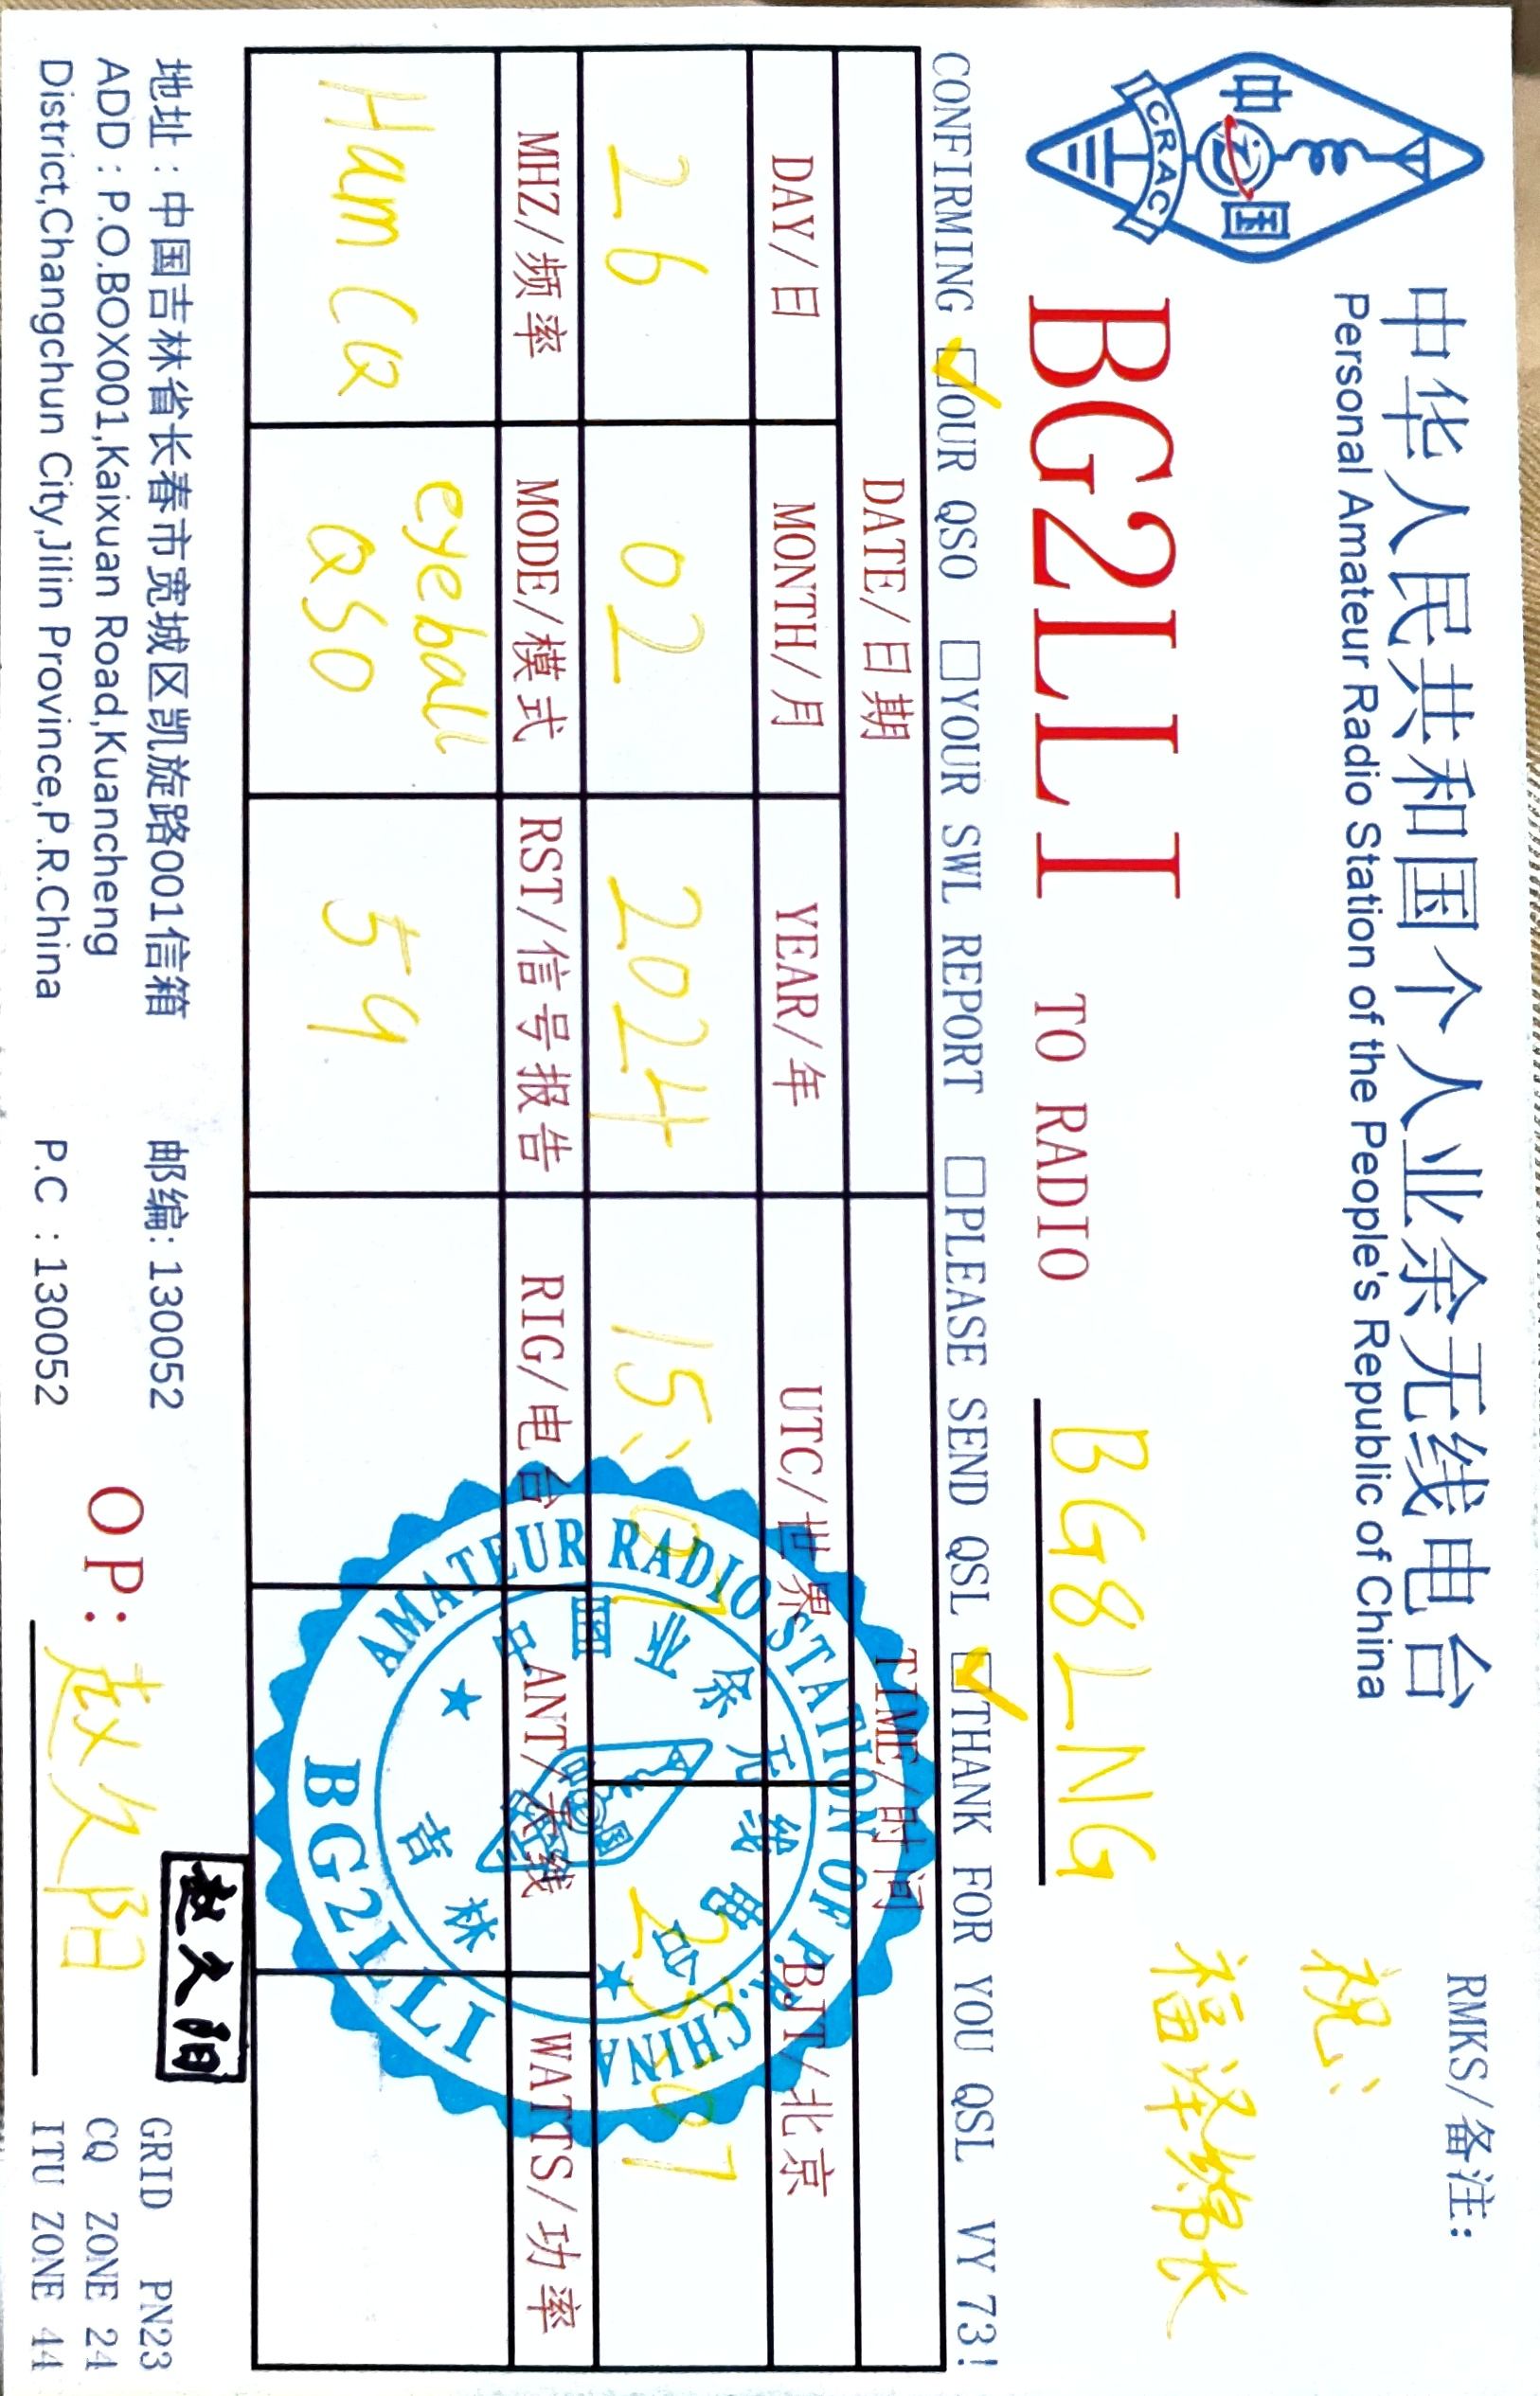 中国
CRAC
中华人民共和国个人业余无线电台
Personal Amateur Radio Station of the People's Republic of China
RMKS/备注:
祝:
福泽绵长
BG2LLI TO RADIO BG8LNG
CONFIRMING ☑OUR QSO □YOUR SWL REPORT □PLEASE SEND QSL ☑THANK FOR YOU QSL VY 73!
DATE/日期 TIME/时间
DAY/日 MONTH/月 YEAR/年 UTC/世界 BJT/北京
26 02 2024 15:07 23:07
MHZ/频率 MODE/模式 RST/信号报告 RIG/电台 ANT/天线 WATTS/功率
Ham CQ eyeball QSO 59
AMATEUR RADIO STATION OF P.R.CHINA
中国业余无线电台
吉林
BG2LLI
地址:中国吉林省长春市宽城区凯旋路001信箱 邮编:130052
ADD:P.O.BOX001,Kaixuan Road,Kuancheng
District,Changchun City,Jilin Province,P.R.China P.C:130052
OP: 赵久阳
赵久阳
GRID PN23
CQ ZONE 24
ITU ZONE 44